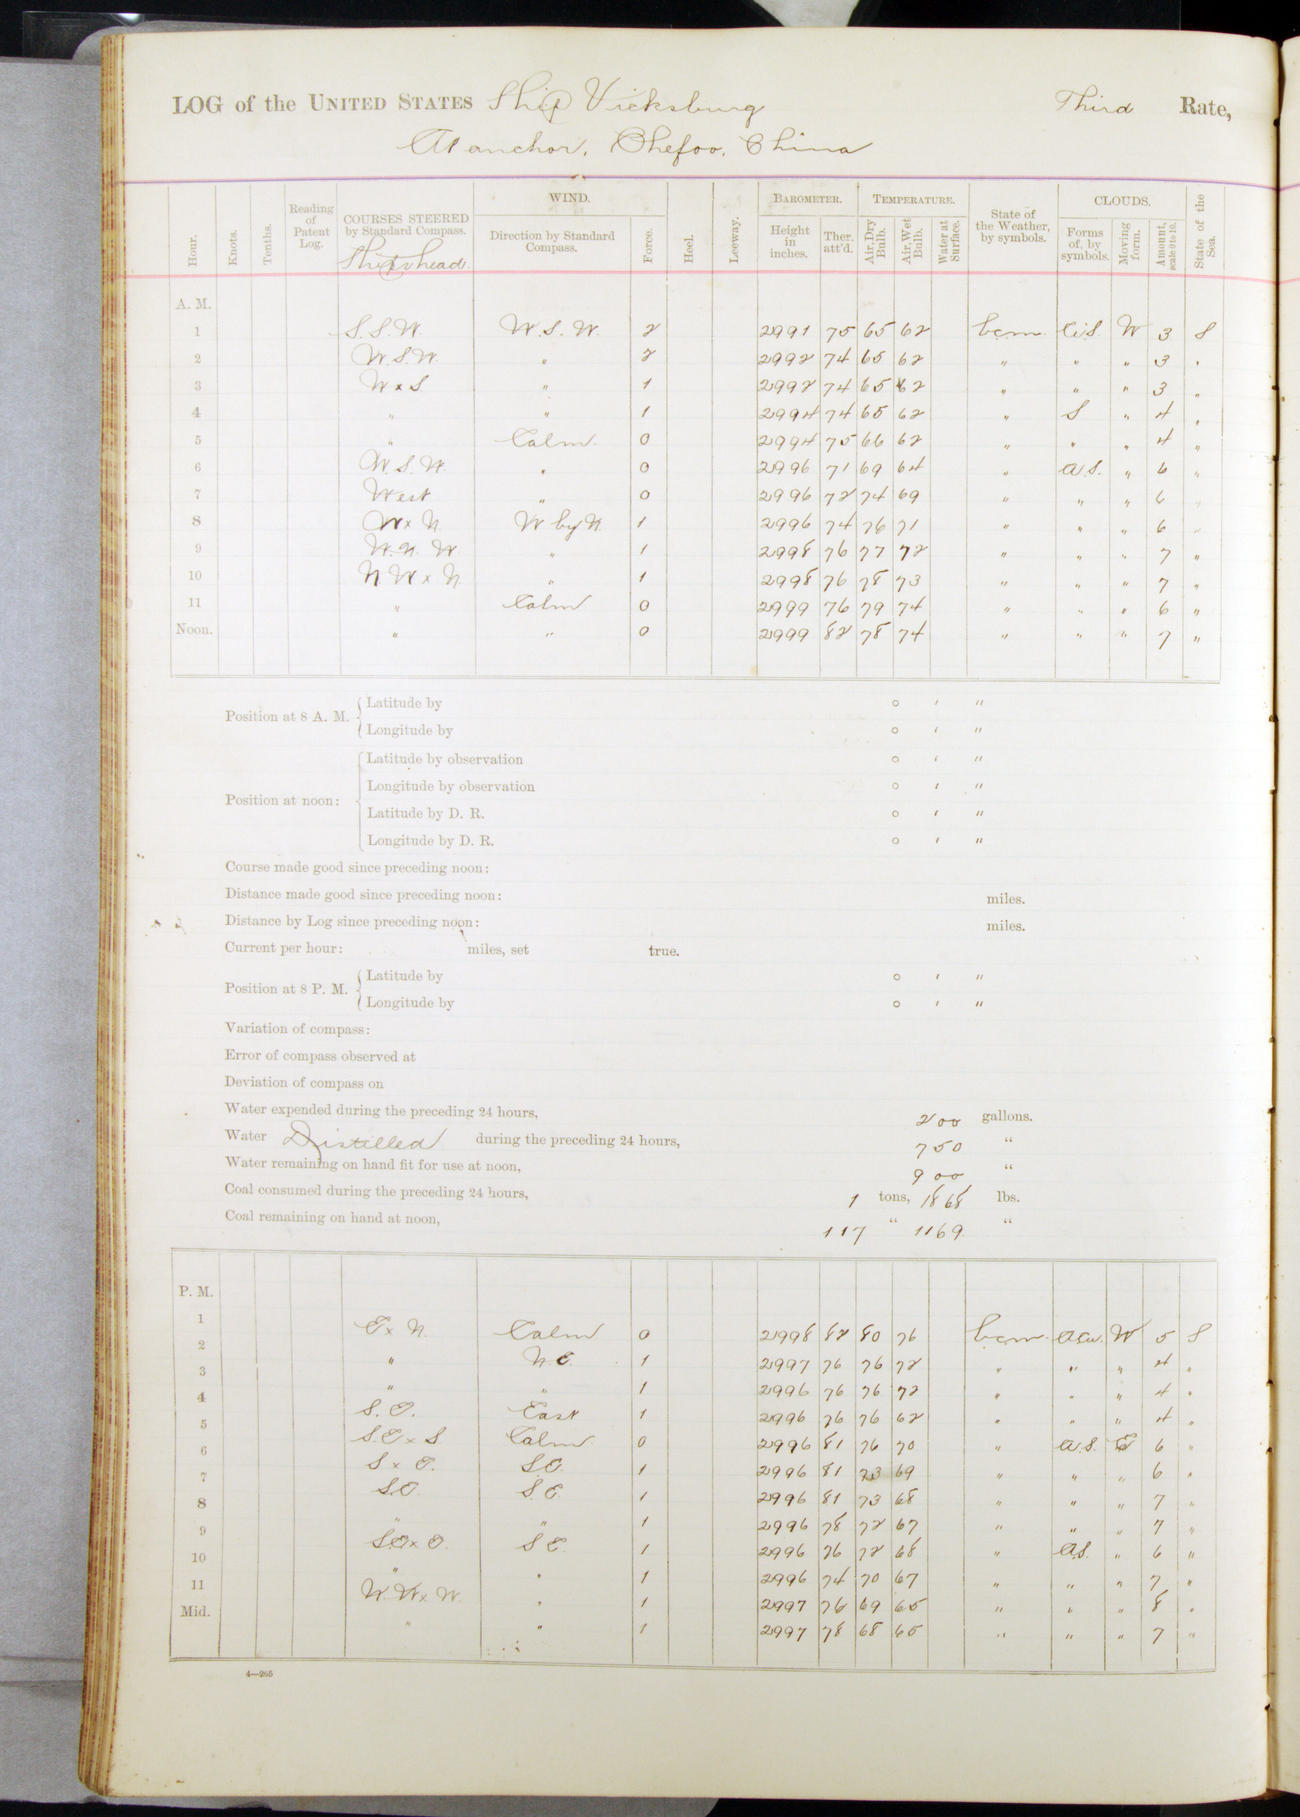 LOG of the UNITED STATES Ship Vicksburg Third Rate,
At anchor, Chefoo, China
Hour. Knots. Tenths. Reading of Patent Log. COURSES STEERED by Standard Compass. Ship's head. WIND. Direction by Standard Compass. Force. Heel. Leeway. BAROMETER. Height in inches. Ther. att'd. TEMPERATURE. Air, Dry Bulb. Air, Wet Bulb. Water at Surface. State of the Weather, by symbols. CLOUDS. Forms of, by symbols. Moving form. Amount, scale 0 to 10. State of the Sea.
A. M.
1 S.S.W. W.S.W. 2 2991 75 65 62 bcm Ci.S. W 3 S
2 W.S.W. " 2 2992 74 65 62 " " " 3 "
3 W x S " 1 2992 74 65 62 " " " 3 "
4 " " 1 2994 74 65 62 " S " 4 "
5 " Calm 0 2994 75 66 62 " " " 4 "
6 W.S.W. " 0 2996 71 69 64 " A.S. " 6 "
7 West " 0 2996 72 74 69 " " " 6 "
8 W x N W by N. 1 2996 74 76 71 " " " 6 "
9 W.N.W " 1 2998 76 77 72 " " " 7 "
10 N W x N " 1 2998 76 78 73 " " " 7 "
11 " Calm 0 2999 76 79 74 " " " 6 "
Noon. " " 0 2999 82 78 74 " " " 7 "
Position at 8 A. M. Latitude by ° ' "
Longitude by ° ' "
Position at noon: Latitude by observation ° ' "
Longitude by observation ° ' "
Latitude by D. R. ° ' "
Longitude by D. R. ° ' "
Course made good since preceding noon:
Distance made good since preceding noon: miles.
Distance by Log since preceding noon: miles.
Current per hour: miles, set true.
Position at 8 P. M. Latitude by ° ' "
Longitude by ° ' "
Variation of compass:
Error of compass observed at
Deviation of compass on
Water expended during the preceding 24 hours, 200 gallons.
Water Distilled during the preceding 24 hours, 750 "
Water remaining on hand fit for use at noon, 900 "
Coal consumed during the preceding 24 hours, 1 tons, 1868 lbs.
Coal remaining on hand at noon, 117 " 1169 "
P. M.
1 E x N. Calm 0 2998 82 80 76 bcm A.Cu. W 5 S
2 " N.E. 1 2997 76 76 72 " " " 4 "
3 " " 1 2996 76 76 72 " " " 4 "
4 S.E. East 1 2996 76 76 62 " " " 4 "
5 S.E x S. Calm 0 2996 81 76 70 " A.S. E 6 "
6 S x E. S.E. 1 2996 81 73 69 " " " 6 "
7 S.E. S.E. 1 2996 81 73 68 " " " 7 "
8 " " 1 2996 78 72 67 " " " 7 "
9 S.E x E. S E. 1 2996 76 72 68 " A.S. " 6 "
10 " " 1 2996 74 70 67 " " " 7 "
11 N.W x W. " 1 2997 76 69 65 " " " 8 "
Mid. " " 1 2997 78 68 65 " " " 7 "
4—265